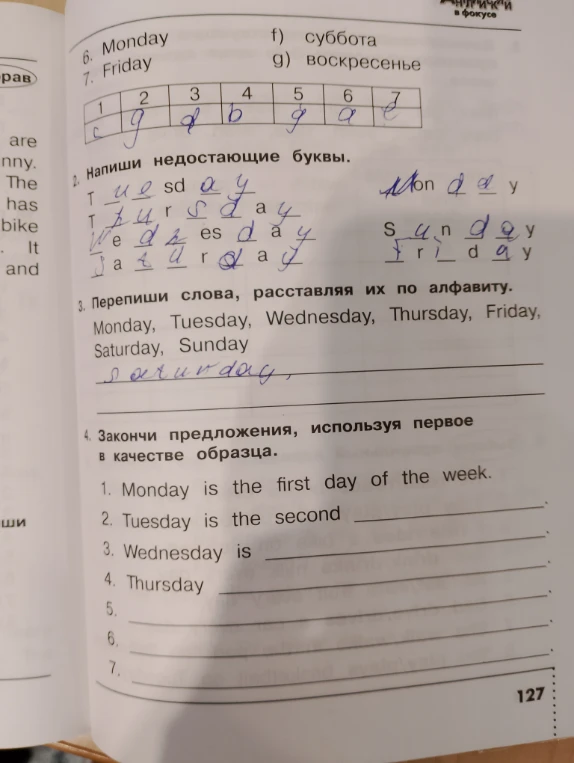 Англійки
в фокусе
6. Monday f) суббота
7. Friday g) воскресенье
1 2 3 4 5 6 7
c g d b g a e
2. Напиши недостающие буквы.
T u e sd a y Mon d a y
T h u r s d a y
W e d n es d a y S u n d a y
S a t u r d a y F r i d a y
3. Перепиши слова, расставляя их по алфавиту.
Monday, Tuesday, Wednesday, Thursday, Friday,
Saturday, Sunday
saturday,
4. Закончи предложения, используя первое
в качестве образца.
1. Monday is the first day of the week.
2. Tuesday is the second ___.
3. Wednesday is ___.
4. Thursday ___.
5. ___.
6. ___.
7. ___.
127
рав
are
nny.
The
has
bike
. It
and
ши